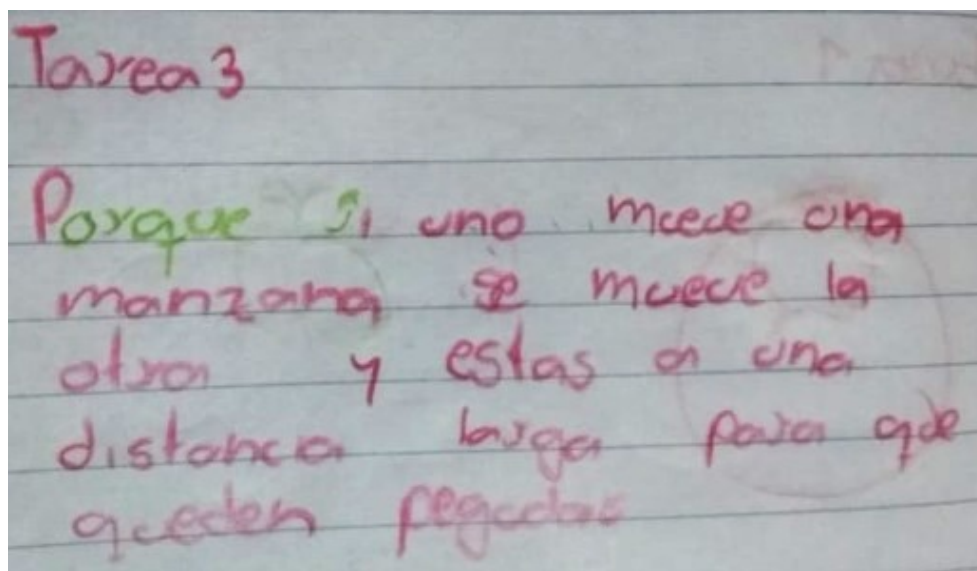 Tarea 3
Porque si uno muece una
manzana se muece la
otra y estas a una
distancia larga para que
queden pegadas